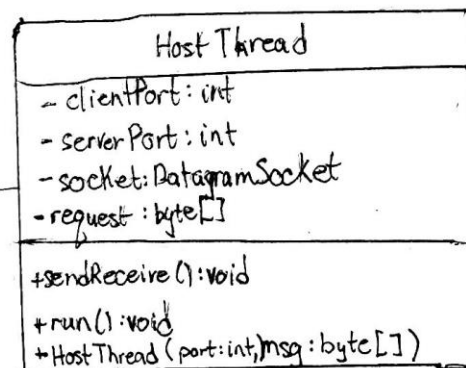 Host Thread
- clientPort : int
- serverPort : int
- socket: DatagramSocket
- request : byte[]
+sendReceive () : void
+ run() : void
+ HostThread (port:int, msg : byte[])